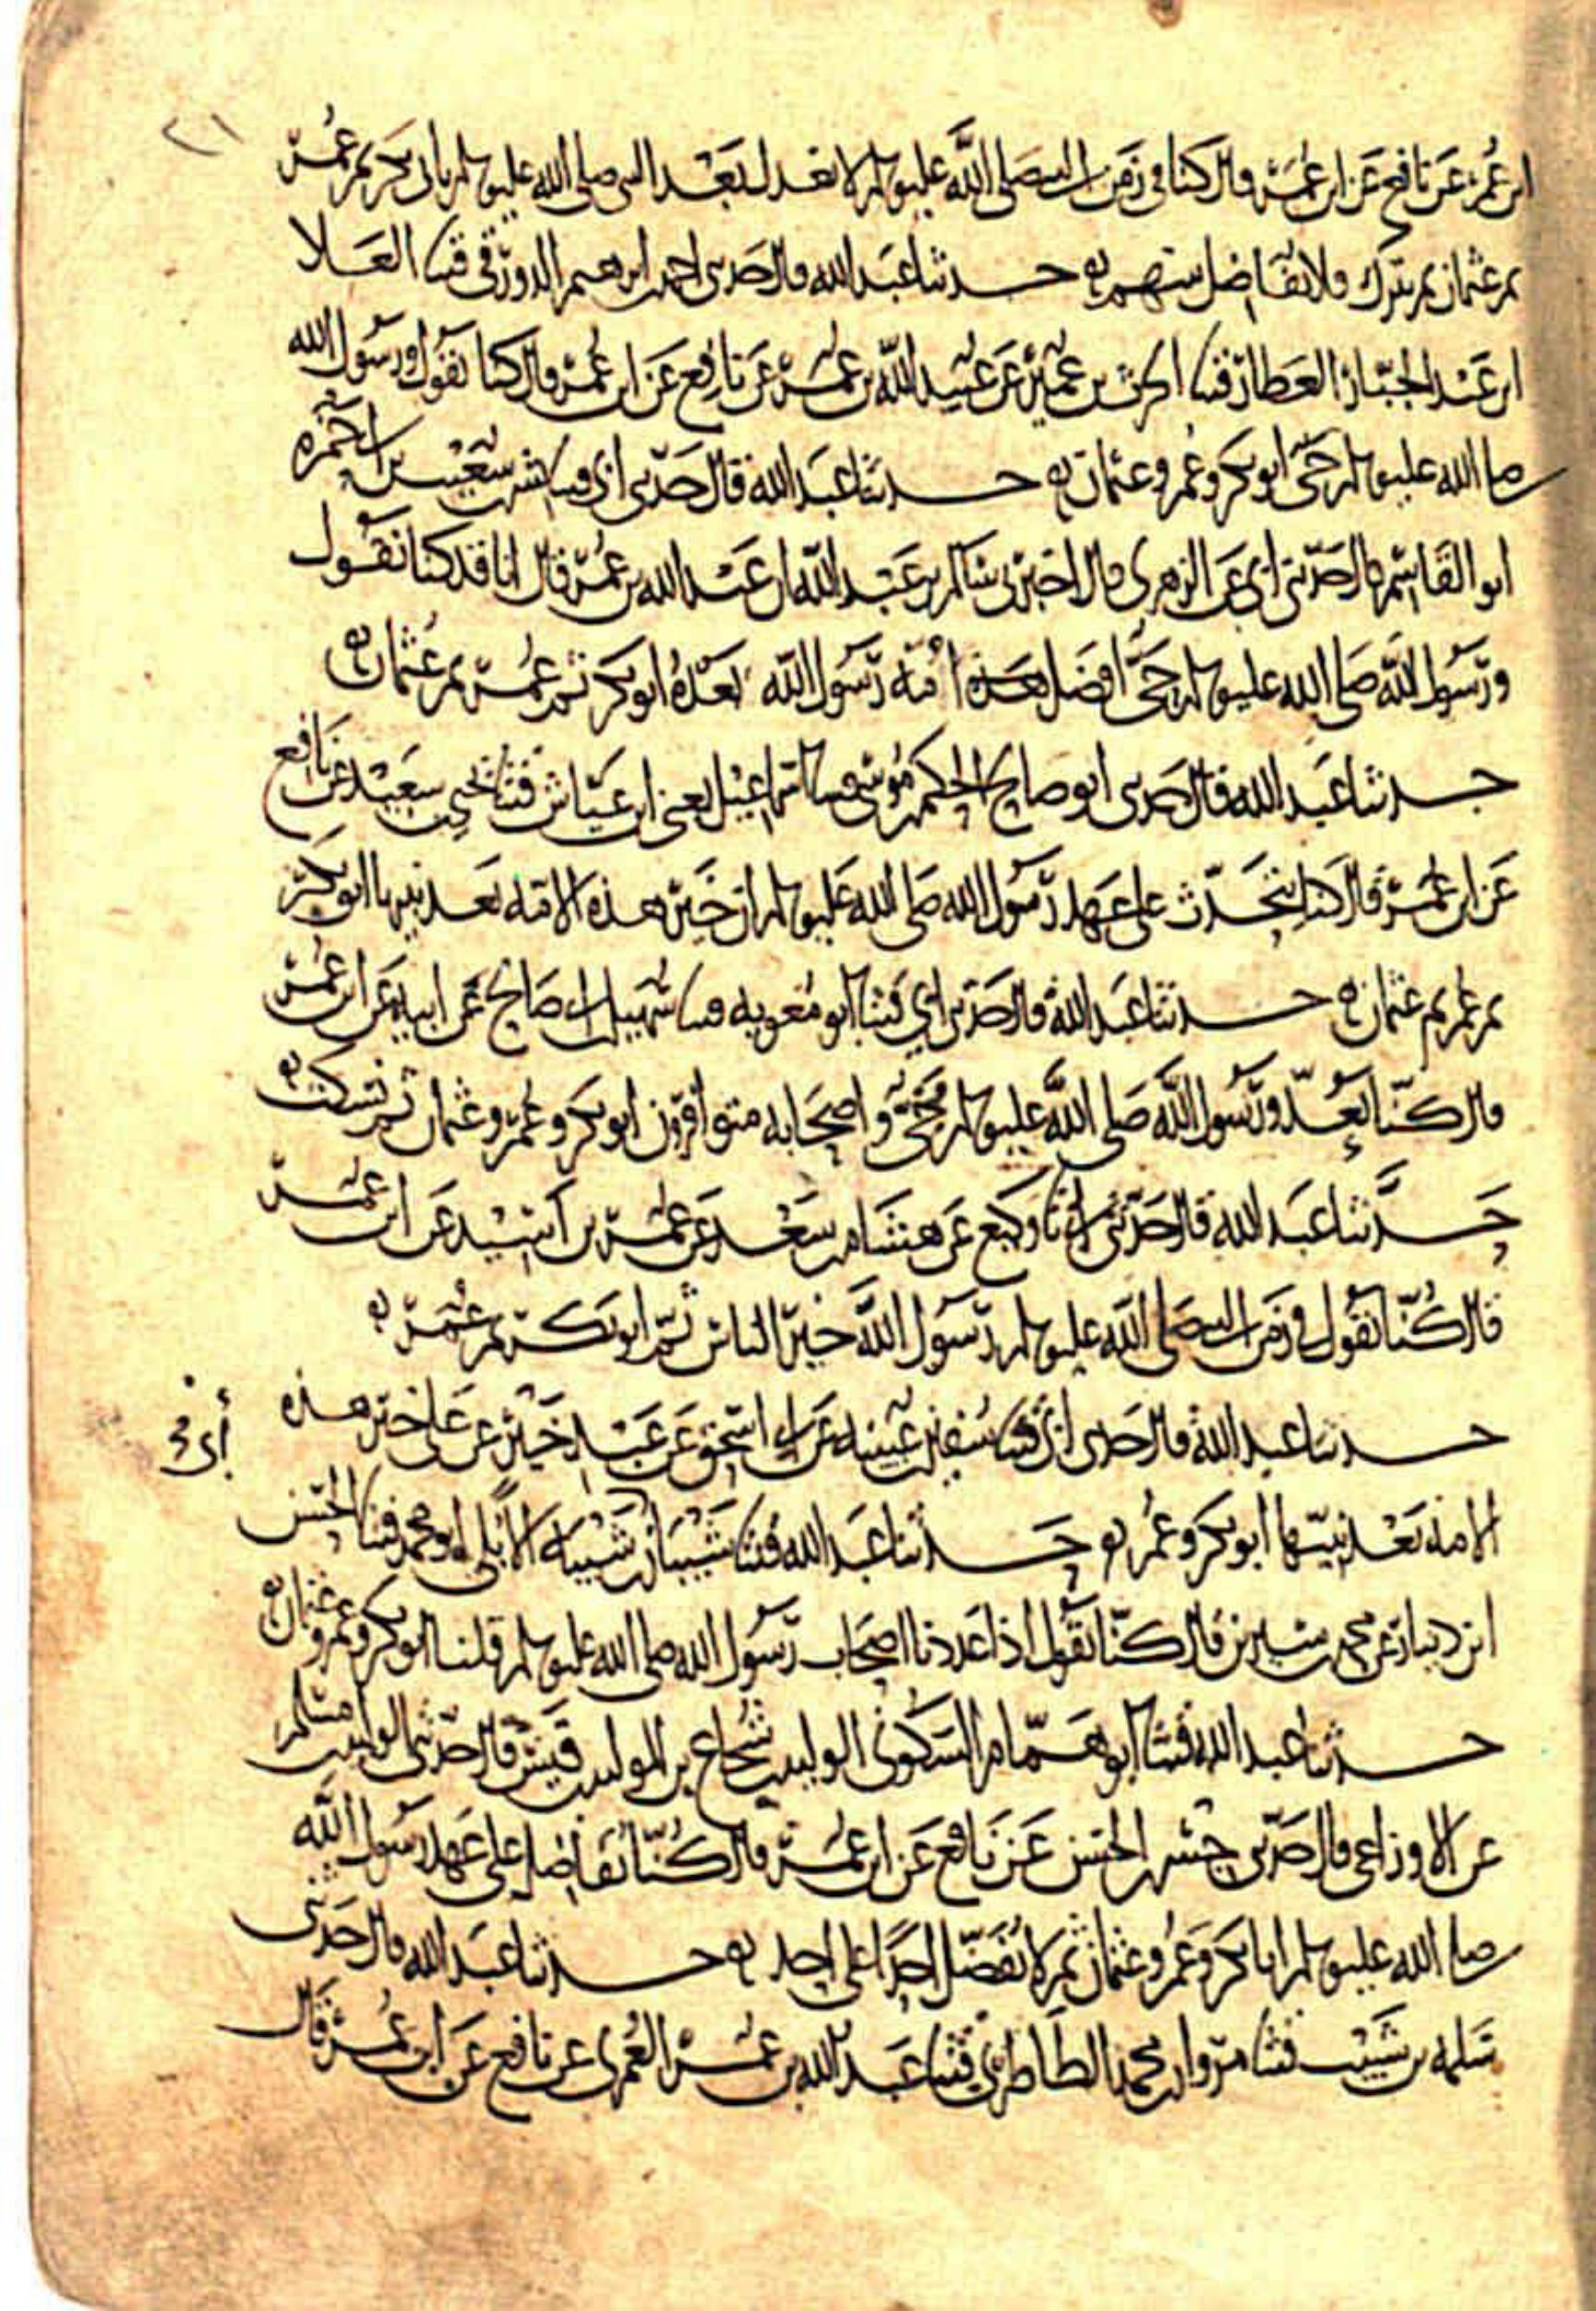 ٢١
ابن عمر عن نافع عن ابن عمر قال كنا في زمن النبي صلى الله عليه وسلم لا نعدل بعد النبي صلى الله عليه وسلم بابي بكر ثم عمر
ثم عثمان ثم نترك ولا نفاضل بينهم ه حدثنا عبد الله قال حدثني احمد بن ابرهيم الدورقي قثنا العلا
ابن عبد الجبار العطار قثنا الحرث بن عمير عن عبيد الله بن عمر عن نافع عن ابن عمر قال كنا نقول ورسول الله
صلى الله عليه وسلم حي ابو بكر وعمر وعثمان ه حدثنا عبد الله قال حدثني ابي قثنا بشر بن شعيب بن ابي حمزه
ابو القاسم قال حدثني ابي عن الزهري قال اخبرني سالم بن عبد الله ان عبد الله بن عمر قال انا قد كنا نقول
ورسول الله صلى الله عليه وسلم حي افضل امة رسول الله بعده ابو بكر ثم عمر ثم عثمان ه
حدثنا عبد الله قال حدثني ابو صالح الحكم بن موسى قثنا اسماعيل يعني ابن عياش قثنا يحيى بن سعيد عن نافع
عن ابن عمر قال كنا نتحدث على عهد رسول الله صلى الله عليه وسلم ان خير هذه الامة بعد نبيها ابو بكر
ثم عمر ثم عثمان ه حدثنا عبد الله قال حدثني ابي قثنا ابو معويه قثنا سهيل بن ابي صالح عن ابيه عن ابن عمر
قال كنا نعد ورسول الله صلى الله عليه وسلم حي واصحابه متوافرون ابو بكر وعمر وعثمان ثم نسكت ه
حدثنا عبد الله قال حدثني ابي نا وكيع عن هشام بن سعد عن عمر بن اسيد عن ابن عمر
قال كنا نقول في زمن النبي صلى الله عليه وسلم رسول الله خير الناس ثم ابو بكر ثم عمر ه
حدثنا عبد الله قال حدثني ابي قثنا سفين بن عيينه عن ابي اسحق عن عبد خير عن علي خير هذه
الامة بعد نبيها ابو بكر وعمر ه حدثنا عبد الله قثنا شيبان بن ابي شيبة الابلي ابو محمد قثنا الحسن
ابن دينار عن محمد بن سيرين قال كنا نقول اذا عددنا اصحاب رسول الله صلى الله عليه وسلم قلنا ابو بكر وعمر وعثمان ه
حدثنا عبد الله قثنا ابو همام السكوني الوليد بن شجاع بن الوليد بن قيس قال حدثني الوليد بن مسلم
عن الاوزاعي قال حدثني جسر بن الحسن عن نافع عن ابن عمر قال كنا نفاضل على عهد رسول الله
صلى الله عليه وسلم ابا بكر وعمر وعثمان ثم لا نفضل احدا على احد ه حدثنا عبد الله قال حدثني
سلمه بن شبيب قثنا مروان بن محمد الطاطري قثنا عبد الله بن عمر العمري عن نافع عن ابن عمر قال